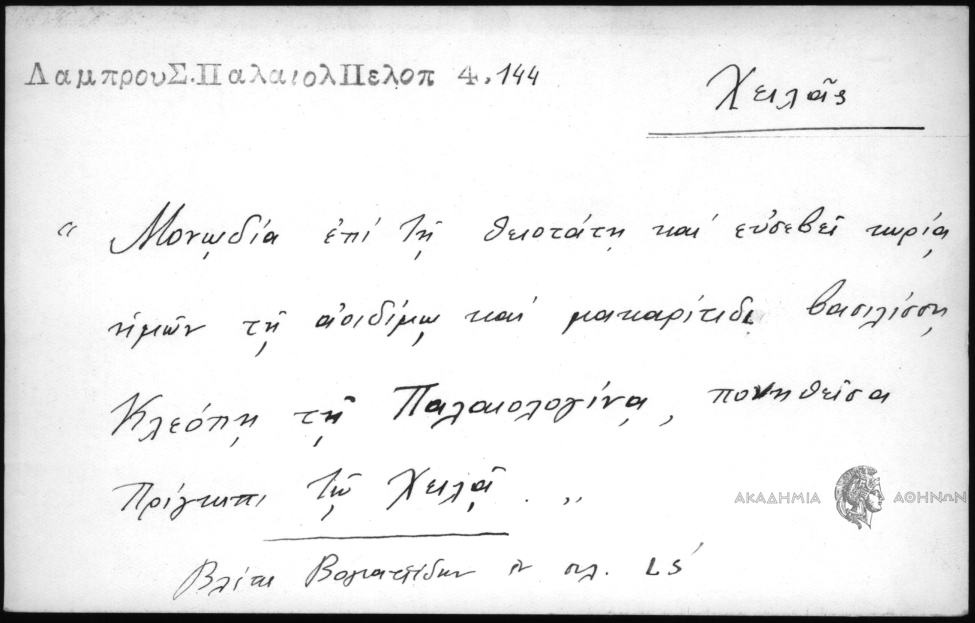 ΛαμπρουΣ.ΠαλαιολΠελοπ 4,144
Χειλᾶς
“ Μονῳδία ἐπί τῇ θειοτάτῃ καί εὐσεβεῖ κυρίᾳ
ἡμῶν τῇ ἀοιδίμῳ καί μακαρίτιδι βασιλίσσῃ
Κλεόπῃ τῇ Παλαιολογίνᾳ, πονηθεῖσα
Πρίγκιπι τῷ Χειλᾷ . „
ΑΚΑΔΗΜΙΑ ΑΘΗΝΩΝ
Βλέπε Βογιατζίδην ἐν σελ.